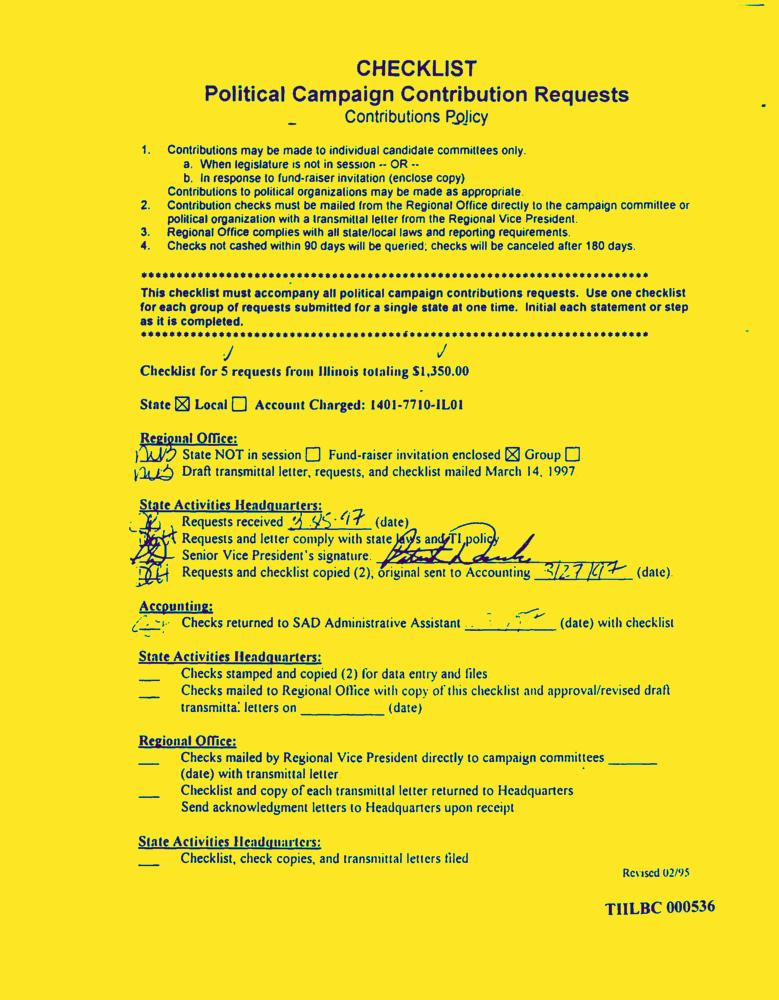 CHECKLIST
Political Campaign Contribution Requests
Contributions Policy
1. Contributions may be made to individual candidate committees only.
a. When legislature is not in session -- OR --
b. In response to fund-raiser invitation (enclose copy)
Contributions to political organizations may be made as appropriate.
2. Contribution checks must be mailed from the Regional Office directly to the campaign committee or
political organization with a transmittal letter from the Regional Vice President.
3. Regional Office complies with all state/local laws and reporting requirements.
4. Checks not cashed within 90 days will be queried; checks will be canceled after 180 days.
This checklist must accompany all political campaign contributions requests. Use one checklist
for each group of requests submitted for a single state at one time. Initial each statement or step
as it is completed.
Checklist for 5 requests from Illinois totaling $1,350.00
State ☒ Local ☐ Account Charged: 1401-7710-IL01
Regional Office:
State NOT in session ☐ Fund-raiser invitation enclosed ☒ Group ☐
Draft transmittal letter, requests, and checklist mailed March 14, 1997
State Activities Headquarters:
Requests received (date)
Requests and letter comply with state laws and TI policy
Senior Vice President's signature.
Requests and checklist copied (2), original sent to Accounting 3/27/97 (date).
Accounting:
Checks returned to SAD Administrative Assistant (date) with checklist
State Activities Headquarters:
Checks stamped and copied (2) for data entry and files
Checks mailed to Regional Office with copy of this checklist and approval/revised draft
transmittal letters on ____ (date)
Regional Office:
Checks mailed by Regional Vice President directly to campaign committees ____
(date) with transmittal letter
Checklist and copy of each transmittal letter returned to Headquarters
Send acknowledgment letters to Headquarters upon receipt
State Activities Headquarters:
Checklist, check copies, and transmittal letters filed
Revised 02/95
TIILBC 000536